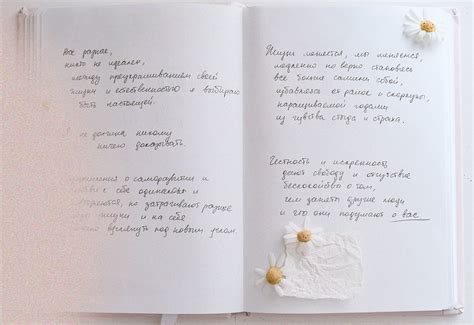 Все разные,
никто не идеален,
между приукрашиванием своей
жизни и естественностью я выбираю
быть настоящей.
не должна никому
ничего доказывать.
о саморазвитии и
к себе одинаковы и
но затрагивают разные
жизни и на себя
взглянуть под новым углом.
Жизнь меняется, мы меняемся,
медленно но верно становясь
все больше самими собой,
избавляясь от рамок и скорлупы,
наращиваемой годами
из чувства стыда и страха.
Честность и искренность
дают свободу и отсутствие
беспокойства о том,
чем заняты другие люди
и что они подумают о вас.